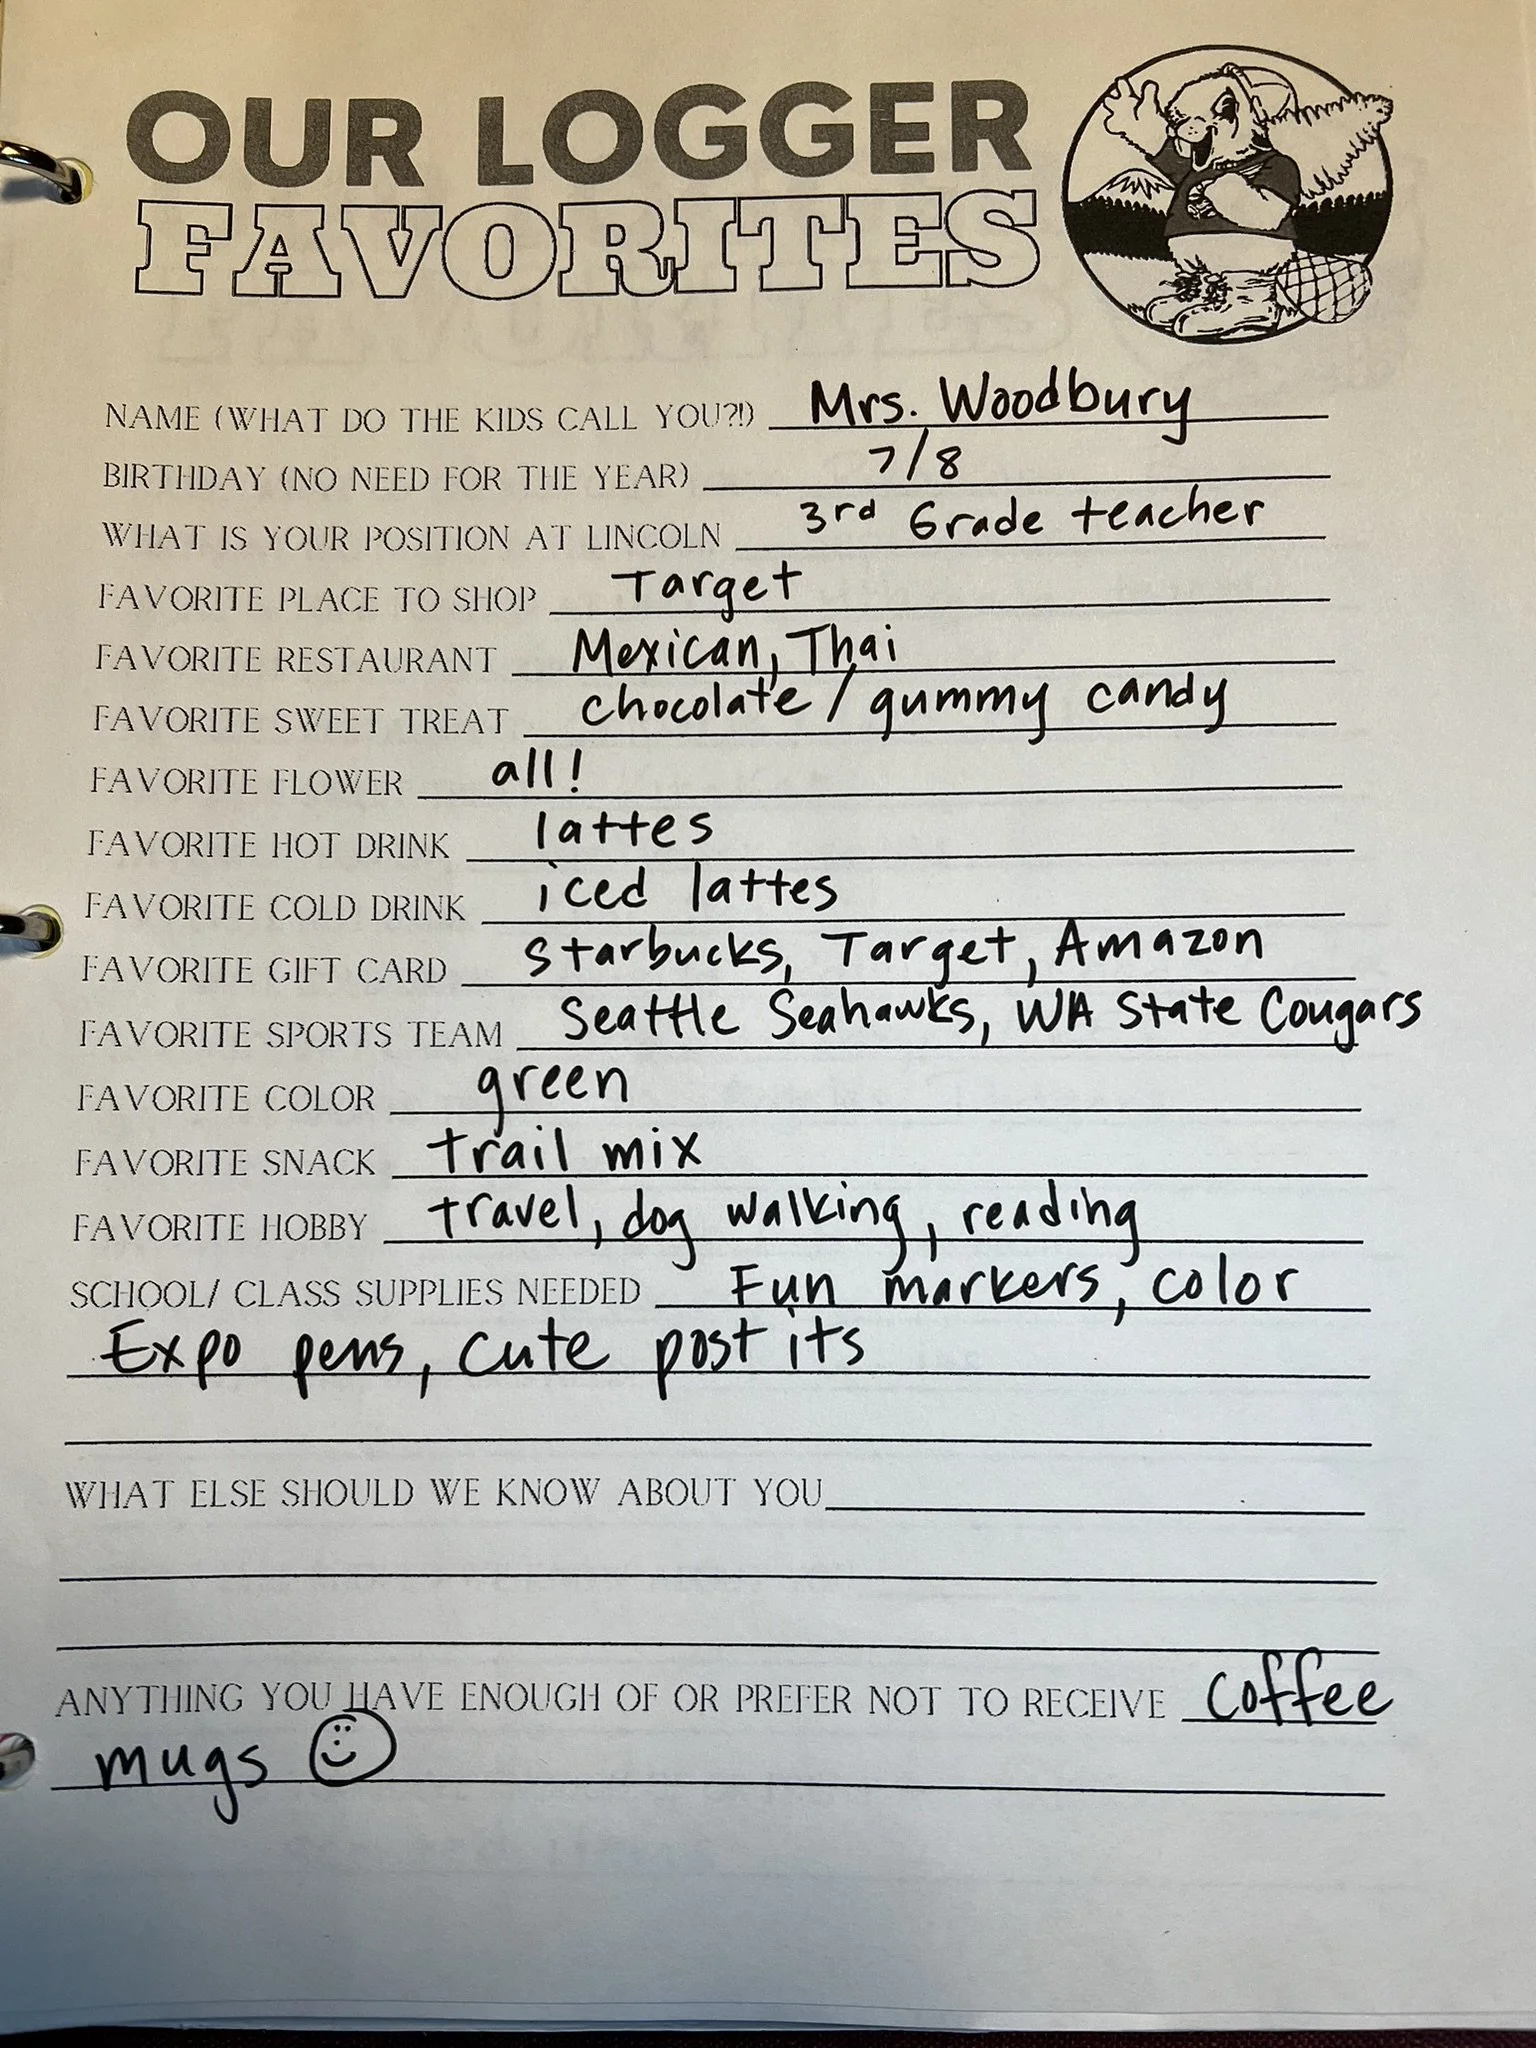 OUR LOGGER
FAVORITES
NAME (WHAT DO THE KIDS CALL YOU?!) Mrs. Woodbury
BIRTHDAY (NO NEED FOR THE YEAR) 7/8
WHAT IS YOUR POSITION AT LINCOLN 3rd Grade teacher
FAVORITE PLACE TO SHOP Target
FAVORITE RESTAURANT Mexican, Thai
FAVORITE SWEET TREAT chocolate / gummy candy
FAVORITE FLOWER all!
FAVORITE HOT DRINK lattes
FAVORITE COLD DRINK iced lattes
FAVORITE GIFT CARD Starbucks, Target, Amazon
FAVORITE SPORTS TEAM Seattle Seahawks, WA State Cougars
FAVORITE COLOR green
FAVORITE SNACK trail mix
FAVORITE HOBBY travel, dog walking, reading
SCHOOL/ CLASS SUPPLIES NEEDED Fun markers, color
Expo pens, cute post its
WHAT ELSE SHOULD WE KNOW ABOUT YOU
ANYTHING YOU HAVE ENOUGH OF OR PREFER NOT TO RECEIVE coffee
mugs